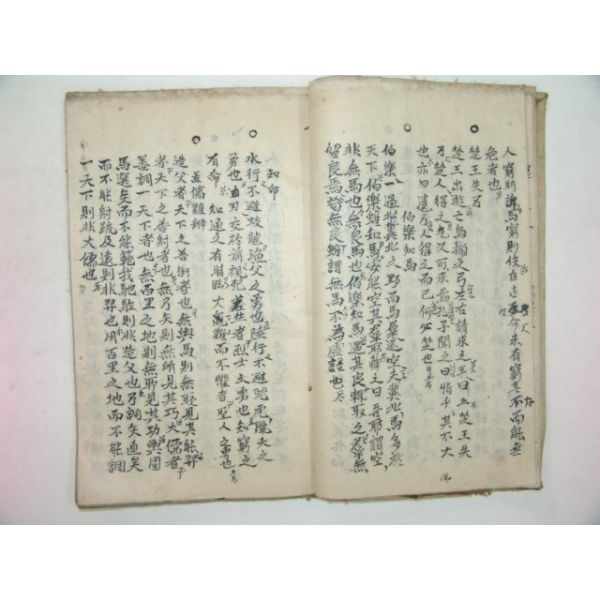 人窮則詐馬窮則佚自古至今未有窮其下而能無
危者也
楚王失弓
楚王出遊亡烏號之弓左右請求之王曰止楚王失
弓楚人得之又何求焉孔子聞之曰惜乎其不大
也亦曰人遺弓人得之而已何必楚也
伯樂知馬
伯樂一過冀北之野而馬羣遂空夫冀北馬多於
天下伯樂雖知馬安能空其羣耶解之曰吾所謂空
非無馬也無良馬也伯樂知馬遇其良輒取之羣無
留良焉苟無良雖謂無馬不為虛語也
知命
水行不避蛟龍漁父之勇也陸行不避兕虎獵夫之
勇也白刃交於前視死若生者烈士之勇也知窮之
有命知通之有時臨大難而不懼者聖人之勇也
真儒難辨
造父者天下之善御者也無輿馬則無所見其能羿
者天下之善射者也無弓矢則無所見其巧大儒者
善調一天下者也無百里之地則無所見其功輿固
馬選矣而不能範我馳驅則非造父也弓調矢直矣
而不能射疏及遠則非羿也用百里之地而不能調
一天下則非大儒也